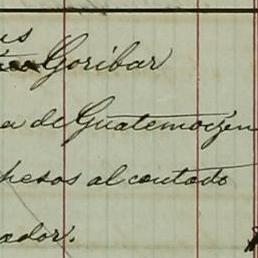 us
Goribar
a de Guatemoczin
pesos al contado
ador.